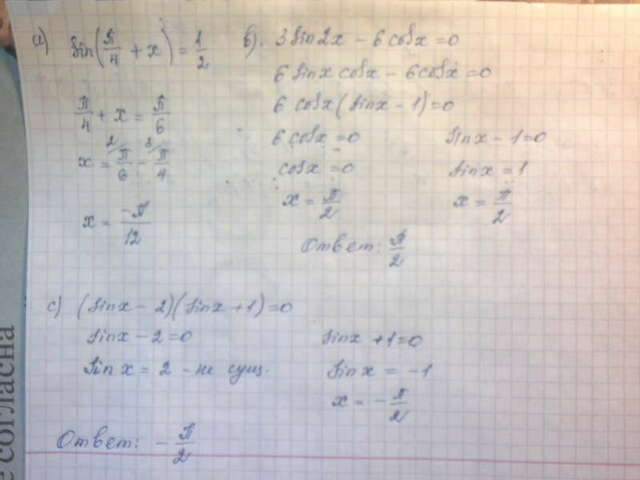 а) sin(π/4 + x) = 1/2
π/4 + x = π/6
x = π/6 - π/4
x = -π/12
б). 3 sin2x - 6 cosx = 0
6 sinx cosx - 6 cosx = 0
6 cosx (sinx - 1) = 0
6 cosx = 0 sinx - 1 = 0
cosx = 0 sinx = 1
x = π/2 x = π/2
Ответ: π/2
с) (sinx - 2)(sinx + 1) = 0
sinx - 2 = 0 sinx + 1 = 0
sinx = 2 - не сущ. sinx = -1
x = -π/2
Ответ: -π/2
е согласна